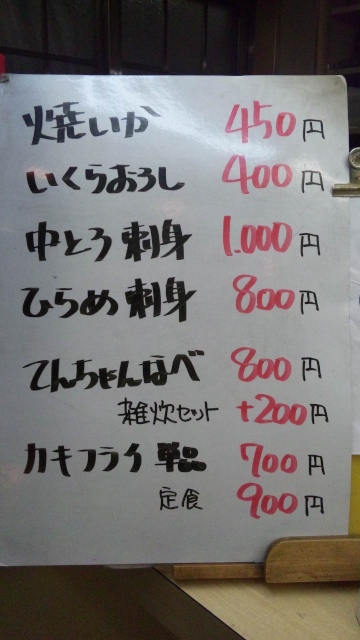 焼いか 450円
いくらおろし 400円
中とろ刺身 1.000円
ひらめ刺身 800円
てんちゃんなべ 800円
雑炊セット +200円
カキフライ 単品 700円
定食 900円